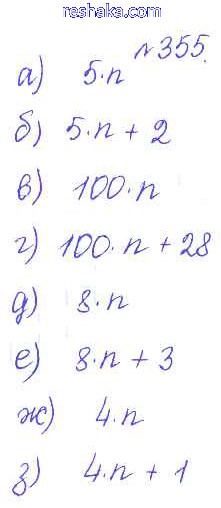 reshaka.com
№355.
а) 5·n
б) 5·n + 2
в) 100·n
г) 100·n + 28
д) 8·n
е) 8·n + 3
ж) 4·n
з) 4·n + 1